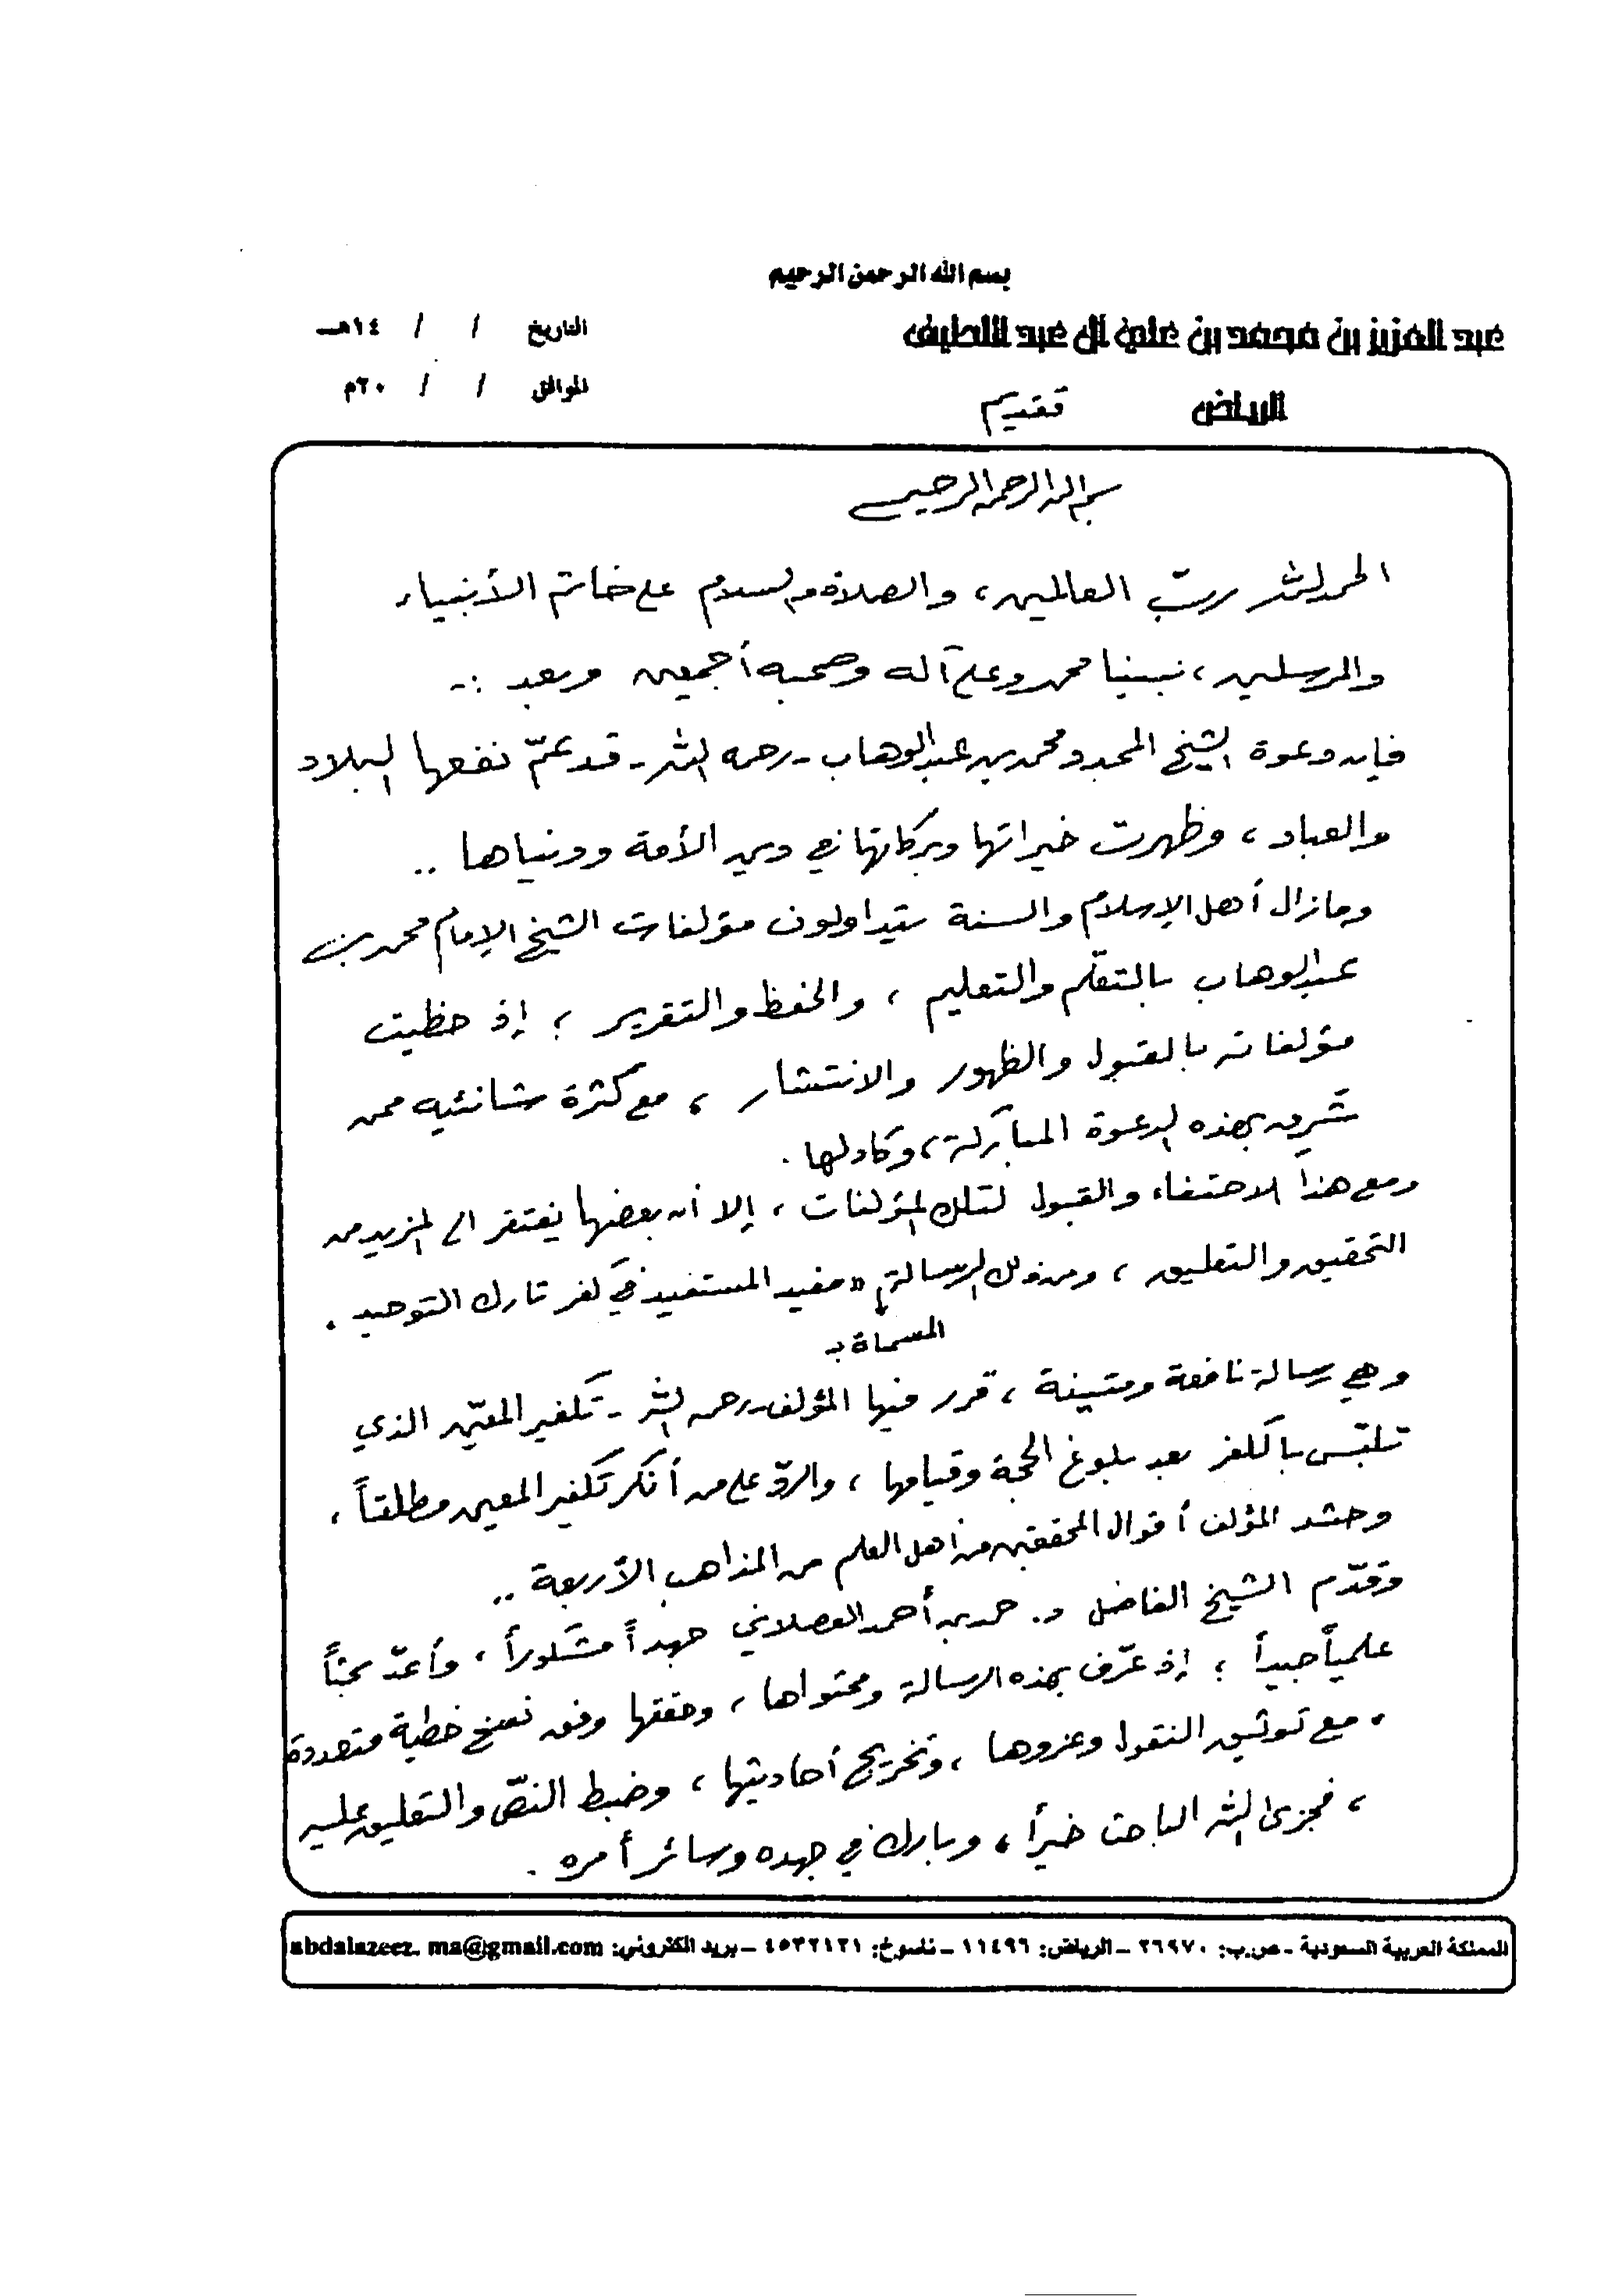 بسم الله الرحمن الرحيم
عبد العزيز بن محمد بن علي آل عبد اللطيف
التاريخ / / ١٤هـ
الرياض
الموافق / / ٢٠م
تقديم
بسم الله الرحمن الرحيم
الحمد لله ربّ العالمين، والصلاة والسلام على خاتم الأنبياء
والمرسلين، نبينا محمد وعلى آله وصحبه أجمعين وبعد :-
فإن دعوة الشيخ المجدد محمد بن عبدالوهاب - رحمه الله - قد عمّ نفعها البلاد
والعباد، وظهرت خيراتها وبركاتها في دين الأمة ودنياها ..
وما زال أهل الإسلام والسنة يتداولون مؤلفات الشيخ الإمام محمد بن
عبدالوهاب بالتعلّم والتعليم، والحفظ والتقرير؛ إذ حظيت
مؤلفاته بالقبول والظهور والانتشار، مع كثرة شانئيه ممن
شَرِق بهذه الدعوة المباركة، وكاد لها.
ومع هذا الاحتفاء والقبول لتلك المؤلفات، إلا أن بعضها يفتقر إلى المزيد من
التحقيق والتعليق، ومن ذلك الرسالة «مفيد المستفيد في كفر تارك التوحيد.
المسماة بـ
وهي رسالة نافعة ومتينة، قرر فيها المؤلف - رحمه الله - تكفير المعيّن الذي
تلبّس بالكفر بعد بلوغ الحجة وقيامها، والردّ على من أنكر تكفير المعين مطلقاً،
وحشد المؤلف أقوال المحققين من أهل العلم من المذاهب الأربعة ..
وقدّم الشيخ الفاضل د. حمد بن أحمد العصلاني جهداً مشكوراً، وأعدّ بحثاً
علمياً جيداً؛ إذ عرّف بهذه الرسالة ومحتواها، وحققها وفق نسخ خطية متعددة
، مع توثيق النقول وعزوها، وتخريج أحاديثها، وضبط النصّ والتعليق عليه
، فجزى الله الباحث خيراً، وبارك في جهده وسائر أمره.
المملكة العربية السعودية - ص.ب: ٢٦٩٧٠ - الرياض: ١١٤٩٦ - ناسوخ: ٤٥٣٢١٢١ - بريد الكتروني: abdalazeez. ma@gmail.com